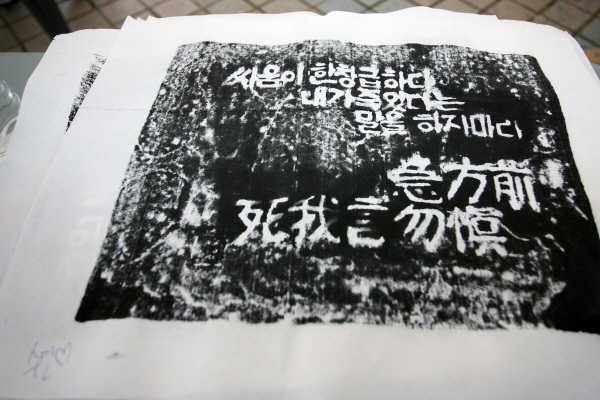 싸움이 한창급하다
내가죽었다는
말을 하지마라
前方急
慎勿言我死